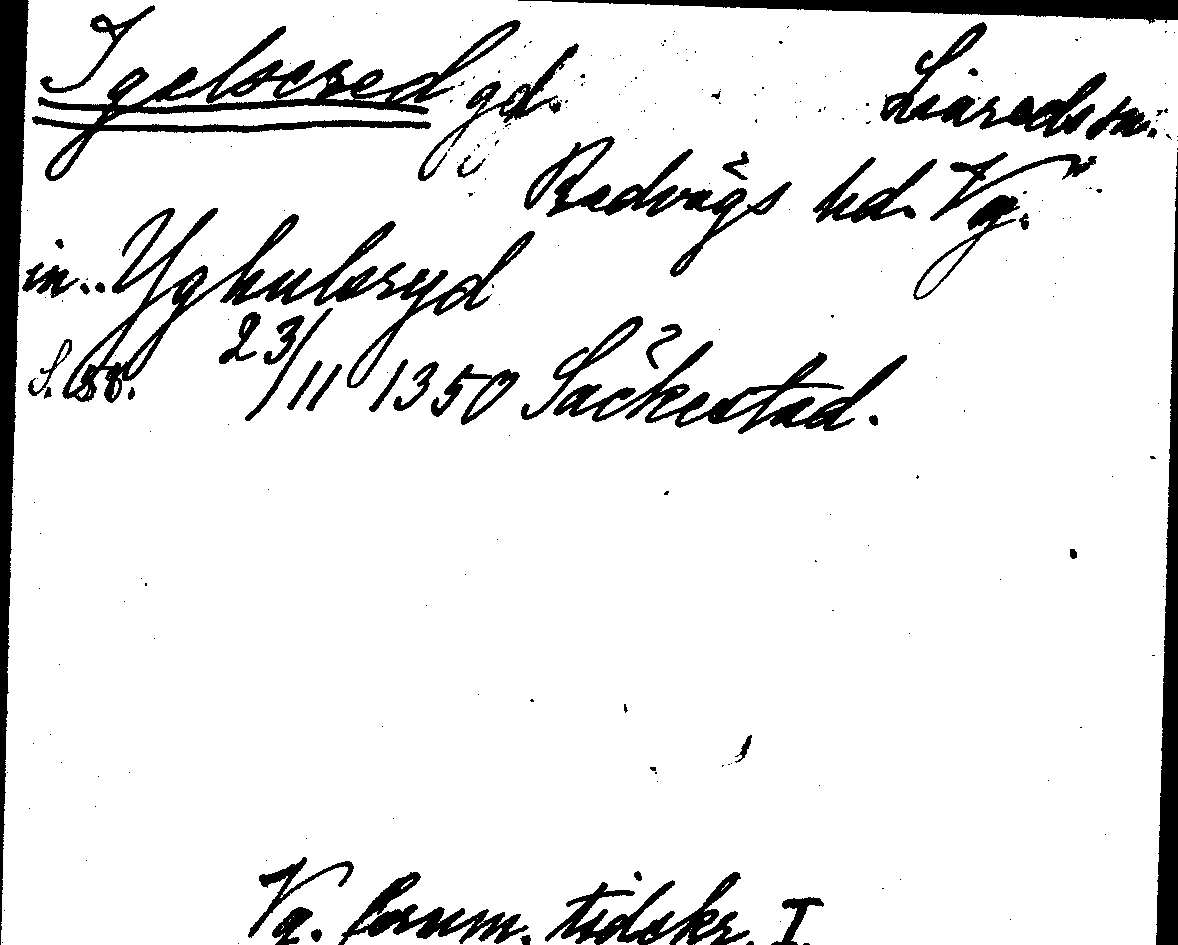 Igelsered gd. Liareds sn.
Redvägs hd. Vg.
in.. Yghulsryd
23/11 1350 Säckestad.
Vg. fornm. tidskr. I.